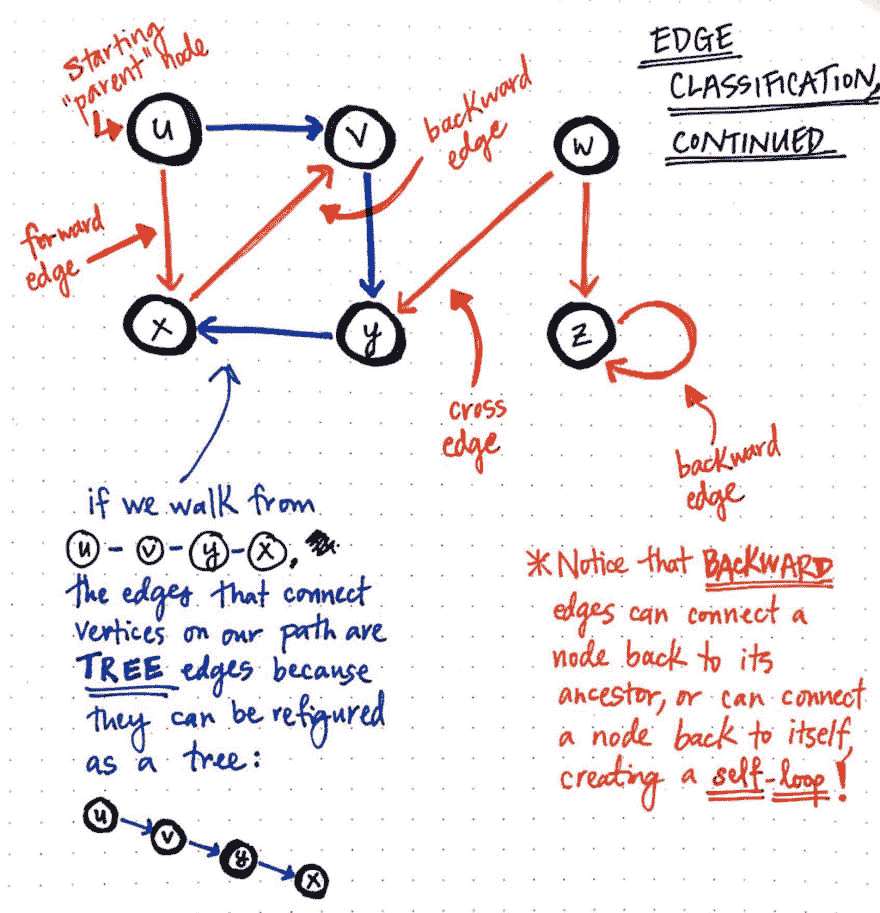 EDGE
CLASSIFICATION,
CONTINUED
starting
"parent" node
u
v
w
backward
edge
forward
edge
x
y
z
cross
edge
backward
edge
if we walk from
u - v - y - x,
the edges that connect
vertices on our path are
TREE edges because
they can be refigured
as a tree:
u
v
y
x
*Notice that BACKWARD
edges can connect a
node back to its
ancestor, or can connect
a node back to itself,
creating a self-loop!